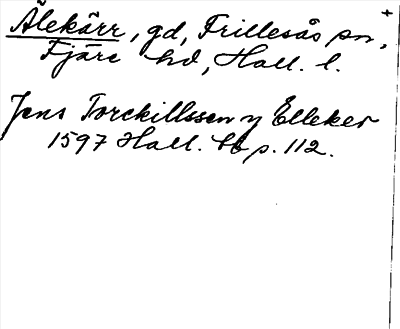 Ålekärr, gd, Frillesås sn,
Fjäre hd, Hall. l.
Jens Torckillssen y Elleker
1597 Hall. Lb p. 112.